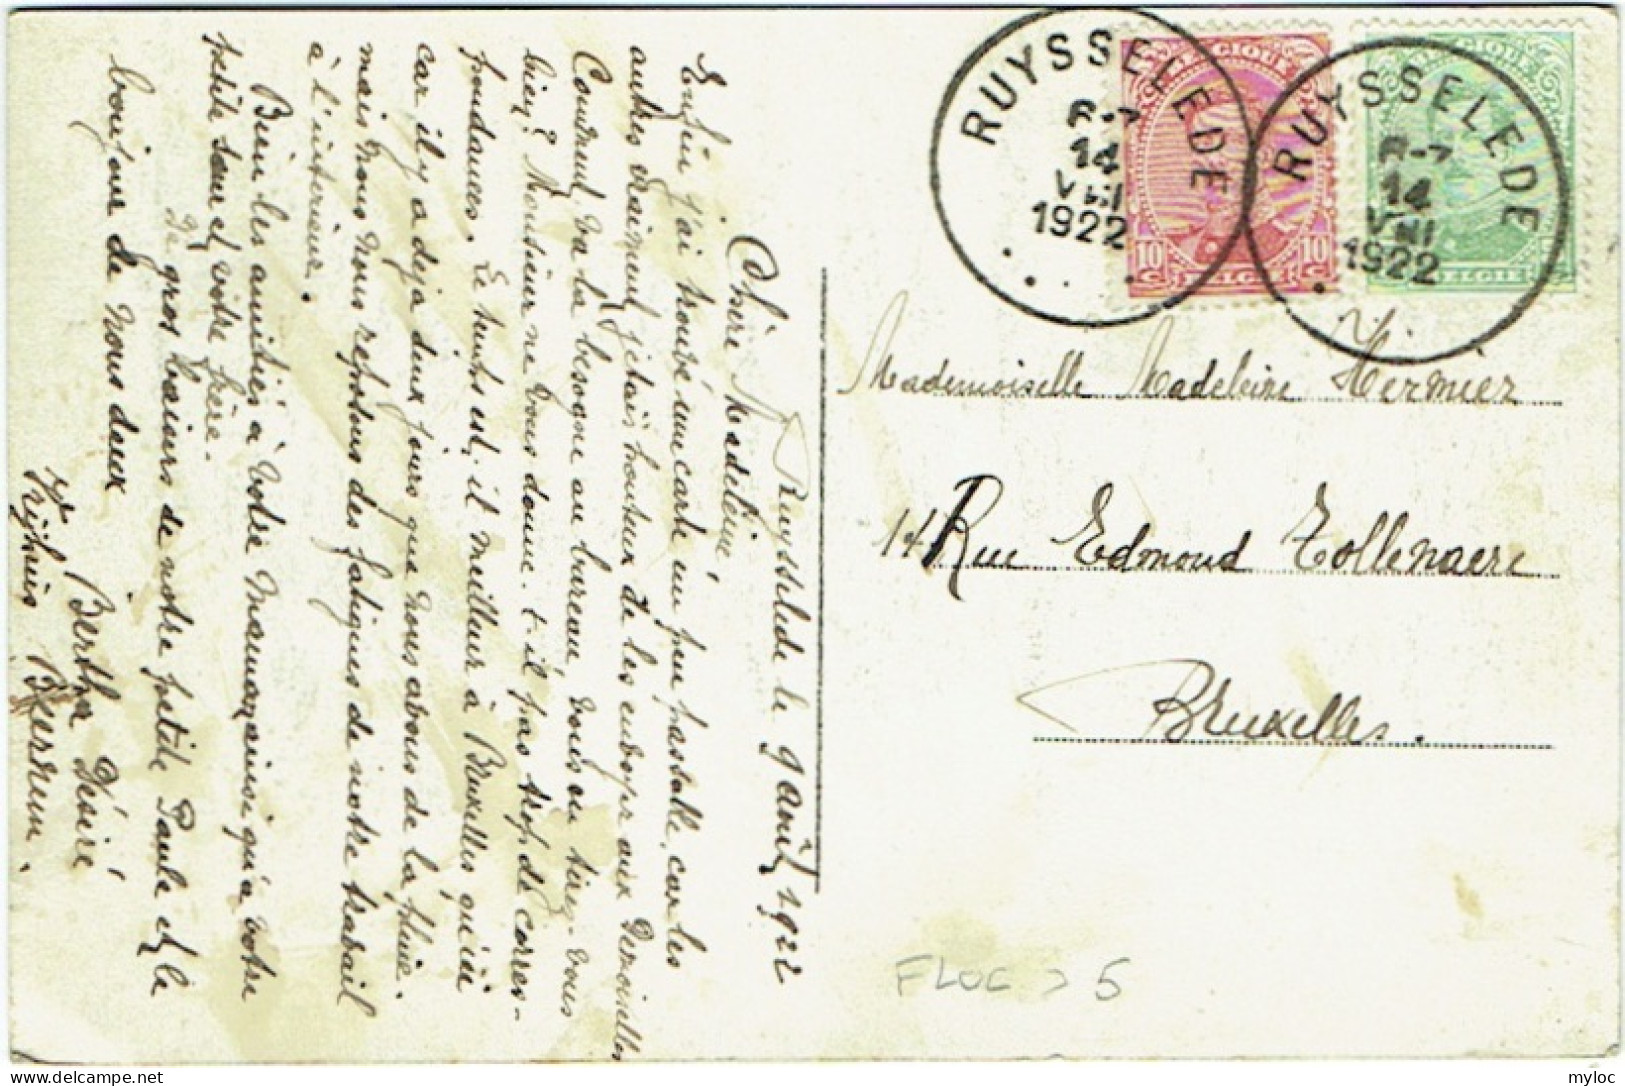 Ruysselede le 9 août 1922
Chère Madeleine,
Enfin j'ai trouvé une carte un peu passable, car les
autres vraiment j'étais honteux de les envoyer aux Demoiselles
Comment va la besogne au bureau, vous en tirez-vous
bien? Monsieur ne vous donne-t-il pas trop de corres-
pondances. Le temps est il meilleur à Bruxelles qu'ici
car il y a deja deux jours que nous avons de la pluie.
mais nous nous reposons des fatigues de notre travail
à l'interieur.
Bien les amitiés à votre Maman ainsi qu'a votre
petite sœur et votre frère.
De gros baisers de notre petite Paule et le
bonjour de nous deux
Bertha Désiré
RUYSSELEDE
14
VIII
1922
BELGIQUE
10 C
10 C
BELGIE
RUYSSELEDE
14
VIII
1922
BELGIQUE
BELGIE
Mademoiselle Madeleine Hermiez
14 Rue Edmond Tollenaere
Bruxelles.
myloc